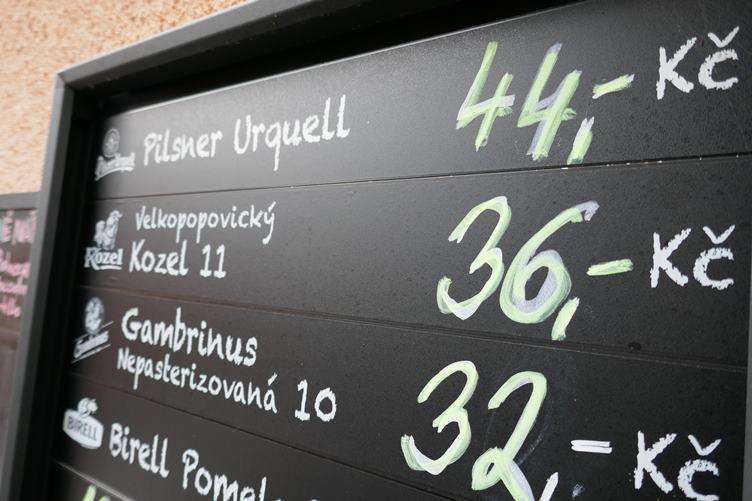 Pilsner Urquell 44,- Kč
Velkopopovický
Kozel
Kozel 11 36,- Kč
Gambrinus
Nepasterizovaná 10 32,- Kč
BIRELL
Birell